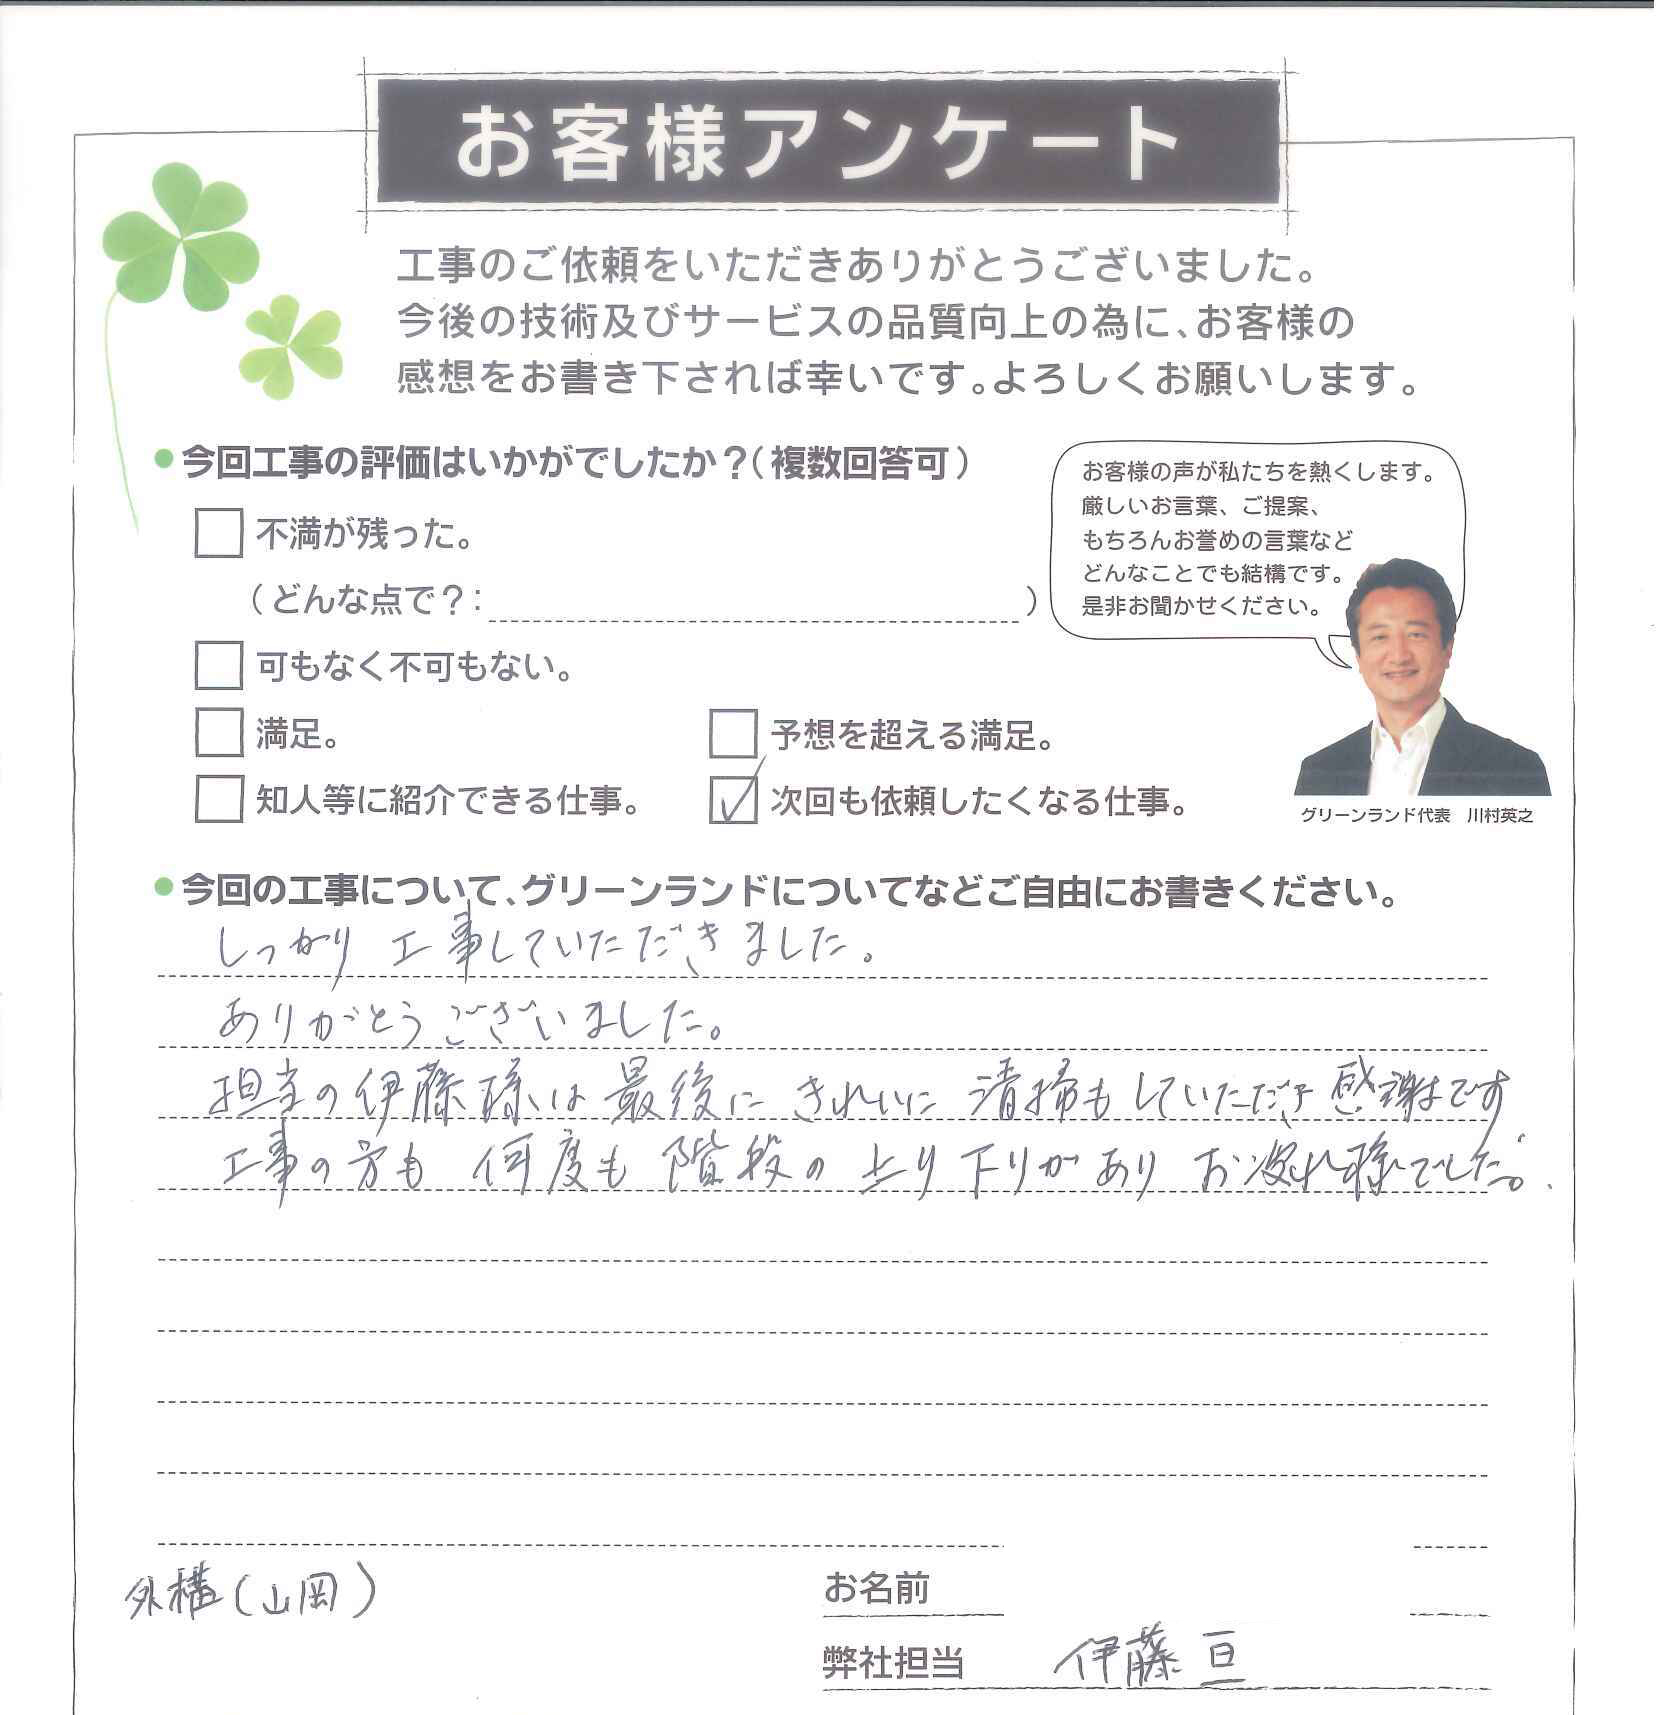 お客様アンケート
工事のご依頼をいただきありがとうございました。
今後の技術及びサービスの品質向上の為に、お客様の
感想をお書き下されば幸いです。よろしくお願いします。
今回工事の評価はいかがでしたか？（複数回答可）
お客様の声が私たちを熱くします。
厳しいお言葉、ご提案、
もちろんお誉めの言葉など
どんなことでも結構です。
是非お聞かせください。
不満が残った。
（どんな点で？： ）
可もなく不可もない。
満足。 予想を超える満足。
知人等に紹介できる仕事。 次回も依頼したくなる仕事。
グリーンランド代表 川村英之
今回の工事について、グリーンランドについてなどご自由にお書きください。
しっかり工事していただきました。
ありがとうございました。
担当の伊藤様は最後にきれいに清掃もしていただき感謝です
工事の方も何度も階段の上り下りがありお疲れ様でした。
外構（山岡）
お名前
弊社担当 伊藤 亘